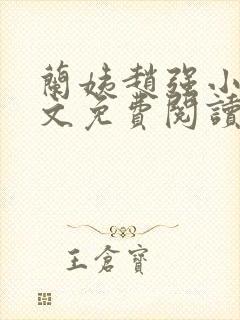 蘭姨趙強小
文免費閱讀
王倉寶